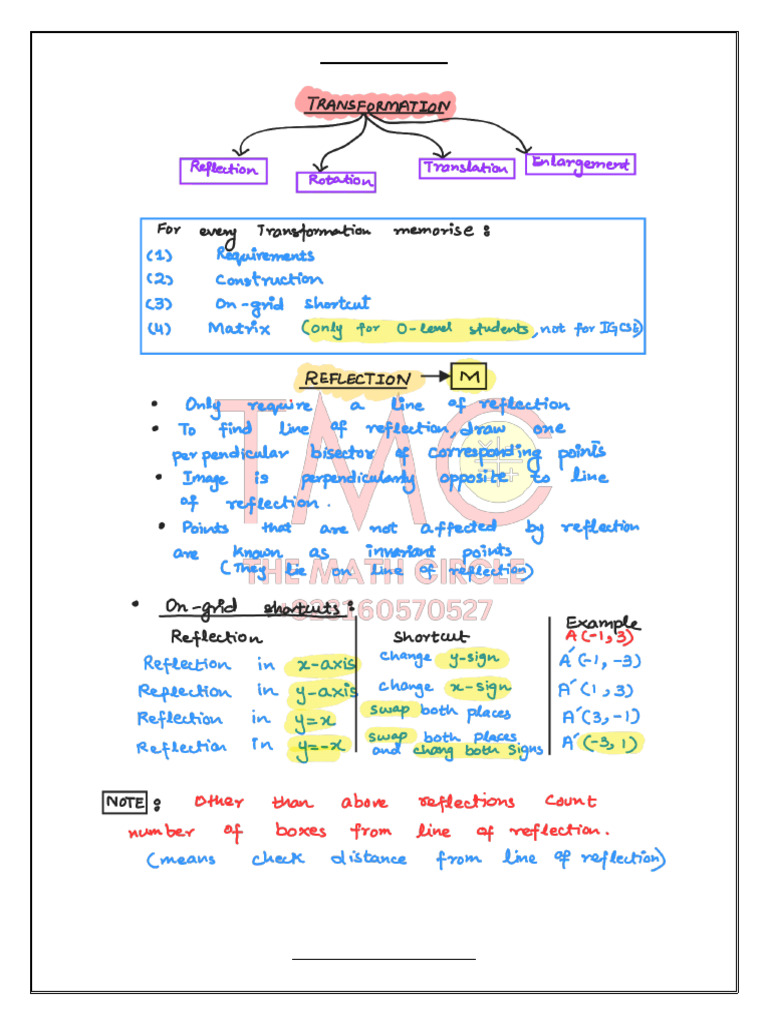 TRANSFORMATION
Reflection
Rotation
Translation
Enlargement
For every Transformation memorise :
(1) Requirements
(2) Construction
(3) On-grid shortcut
(4) Matrix (only for O-level students, not for IGCSE)
REFLECTION → M
• Only require a line of reflection
• To find line of reflection, draw one
perpendicular bisector of corresponding points
• Image is perpendicularly opposite to line
of reflection.
• Points that are not affected by reflection
are known as invariant points
(They lie on line of reflection)
TMC
THE MATH CIRCLE
+923160570527
• On-grid shortcuts :
Reflection Shortcut Example
A(-1, 3)
Reflection in x-axis change y-sign A′(-1, -3)
Reflection in y-axis change x-sign A′(1, 3)
Reflection in y=x swap both places A′(3, -1)
Reflection in y=-x swap both places and chang both signs A′(-3, 1)
NOTE : Other than above reflections count
number of boxes from line of reflection.
(means check distance from line of reflection)